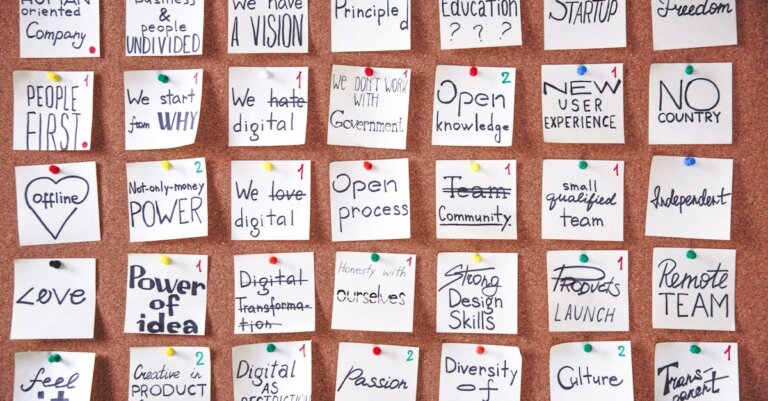 HUMAN
oriented
Company
business
&
people
UNDIVIDED
We have
A VISION
Principled
Education
? ? ?
STARTUP
Freedom
1
PEOPLE
FIRST
1
We start
from WHY
1
We hate
digital
1
WE DON'T WORK
WITH
Government
2
Open
knowledge
1
NEW
USER
EXPERIENCE
NO
COUNTRY
offline
2
Not-only-money
POWER
1
We love
digital
Open
process
1
Team
Community
1
small
qualified
team
Independent
Love
1
Power
of
idea
Digital
Transforma-
tion
1
Honesty with
ourselves
Strong
Design
Skills
1
Products
LAUNCH
Remote
TEAM
feel
2
Creative in
PRODUCT
1
Digital
AS
2
Passion
Diversity
of
2
Culture
1
Trans-
parent